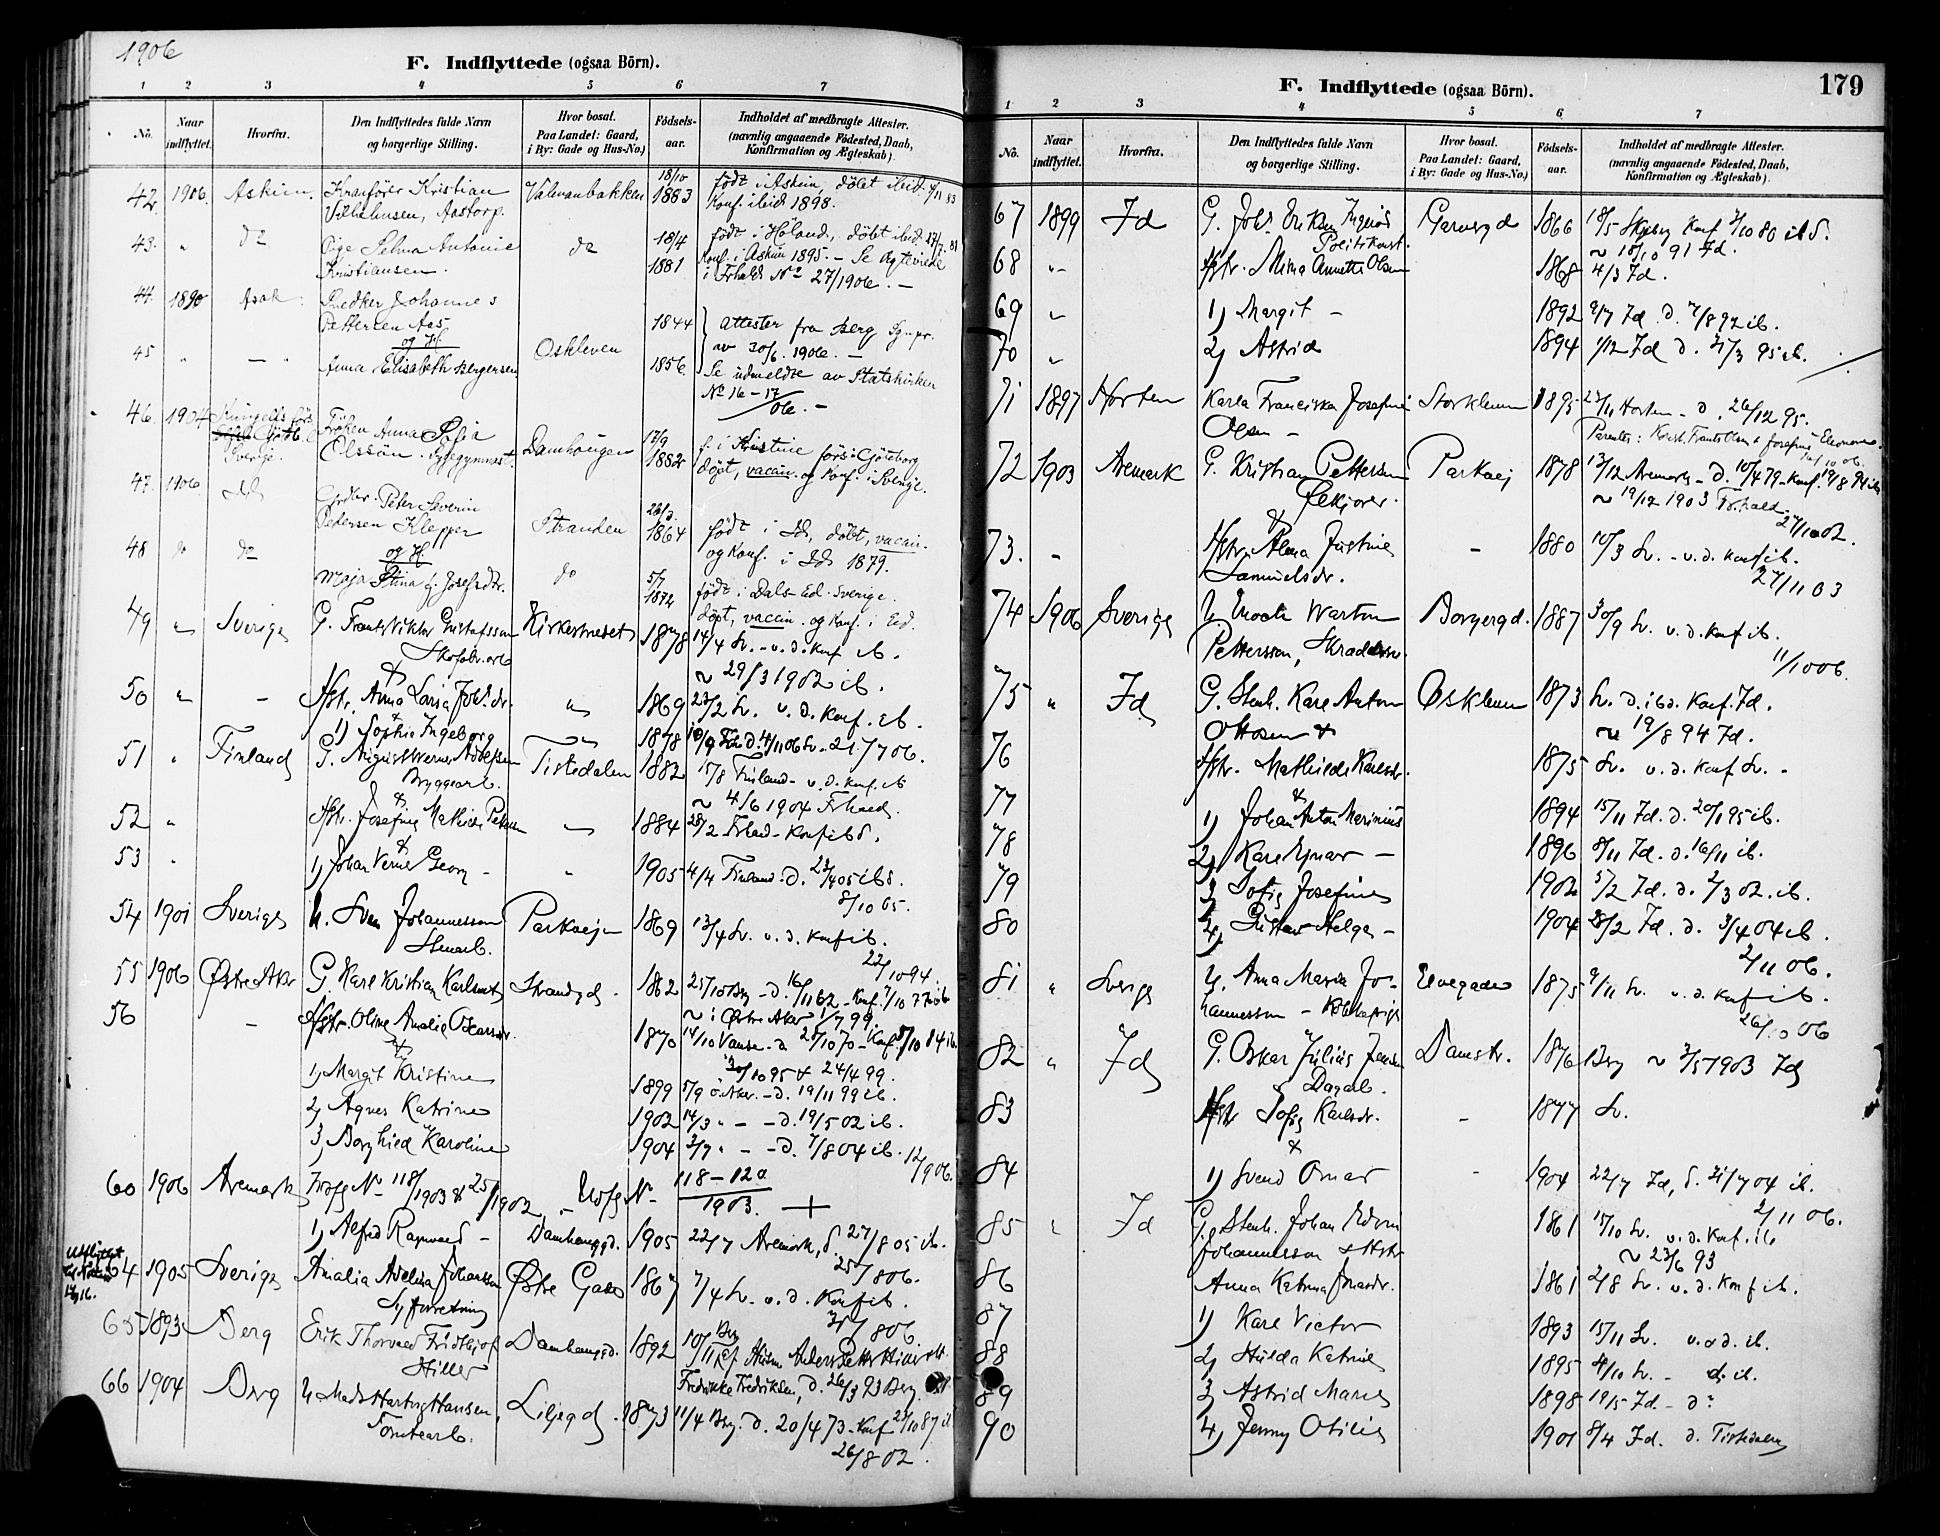 1906
F. Indflyttede (ogsaa Börn).
1 2 3 4 5 6 7
No. Naar indflyttet. Hvorfra. Den Indflyttedes fulde Navn og borgerlige Stilling. Hvor bosat. Paa Landet: Gaard, i By: Gade og Hus-No.) Födsels-aar. Indholdet af medbragte Attester. (navnlig angaaende Födested, Daab, Konfirmation og Ægteskab).
42. 1906. Askim. Kristian 18/10 1883 født i Askim, døbt ibid.
Vilhelmsen, Aastorp. Konf. ibid 1898.
43. " do Pige Selma Antonie do 18/4 1881 født i Høland, døbt ibid.
Kristiansen. Konf. i Askim 1895. – Se Ægteviede
i Frhald No 27/1906. –
44. 1890 Asak. Snedker Johannes
Pettersen Aas 1844 attester fra Berg Sgnpr.
og H. Oskleven av 30/6 1906. –
45 " – " Anna Elisabeth Bergersen 1856. Se udmeldte av Statskirken
No 16–17/06. –
46. 1904 Sverige. Frøken Anna Sofia
Olsson. Sygegymnast. Damhaugen 17/9 1882 f. i Kristine förs. Göteborg
døpt, vaccin. og Konf. i Sverige.
47. 1906 Id Peter Severin
Pedersen Klepper Stranden 1864 født i Id, døbt, vaccin.
og H. og Konf. i Id 1879.
48 do do Maja Stina Josefsdtr. do 5/7 1872 født i Dals-Ed. Sverige.
døpt, vaccin. og Konf. i Ed.
49 " Sverige G. Frants Viktor Gustafsson Kirkestredet 1878 14/4 Sv. – v. d. Konf ib.
& ~ 29/3 1902 ib.
50 " – Hstr. Anna Lovisa Johsdr. " 1869 23/2 Sv. v. d. Konf. ib.
1) Sophie Ingeborg
51 " Finland G. August Werner Adolfsen Tistedalen 1882 15/8 Finland – v. d. Konf. ib
Bryggearb. ~ 4/6 1904 Frhald.
&
52 " Hstr. Josefine Mathilde 1884 28/2 Frhald – Konf ib
&
53 " 1) Johan Verner Georg – " 1905 4/4 Finland. d.
54 1901 Sverige U. Sven Johannesson Parkvejen 1869 13/4 Sv. v. d. Konf ib.
Stenarb. 22/10 94
55 1906 Østre Aker G. Karl Kristian Karlsen Strandgd. 1862 25/10 Berg – d. 16/11 62 – Konf.
~ i Østre Aker 1/7 99
56 – Hstr. Oline Amalie 1870 14/10 Vanse – d 28/10 70 – Konf.
& 24/4 99.
1) Margit Kristine 1899 5/9 Ø. Aker. – d. 19/11 99 ib.
2) Agnes Katrine 1902 14/3 " – – d. 19/5 02 ib.
3) Borghild Karoline 1904 3/7 " – – d. 7/8 04 ib. 12/9 06.
60 1906 Aremark No 118/1903 & 25/1902 – Udfg No – 118–120/1903.
1) Alfred Ragnvald – Damhauggd. 1905 22/7 Aremark, d. 27/8 05 ib.
64 1905 Sverige Amalia Adelina Johansson Østre Gade 1867 7/4 Sv. v. d. Konf ib.
Syforretning
65 1893 Berg Erik Thorvald Fridthjof Damhauggd. 1892 10/11 Berg
Hiller Fredrikke Fredriksen, d. 26/3 93 Berg.
66 1904 Berg U. Mads Hartvig Hansen, Liljegd. 1873 11/4 Berg. d. 20/4 73 – Konf
Tomtearb. 26/8 02.
F. Indflyttede (ogsaa Börn). 179
1 2 3 4 5 6 7
No. Naar indflyttet. Hvorfra. Den Indflyttedes fulde Navn og borgerlige Stilling. Hvor bosat. Paa Landet: Gaard, i By: Gade og Hus-No.) Födsels-aar. Indholdet af medbragte Attester. (navnlig angaaende Födested, Daab, Konfirmation og Ægteskab).
67 1899 Id G. Johs. Eriksen Garvergd 1866 18/5 Skjeberg Konf
Politikonst. ~ 18/10 91 Id.
68 " – Hstr. Mina Annette Olsen 1868 4/3 Id.
69 " 1) Margit – 1892 9/7 Id. d. 7/8 92 ib.
70 " 2) Astrid 1894 1/12 Id d. 31/3 95 ib.
71 1897 Horten Karla Franciska Josefine Storkleven 1895 23/11 Horten – d. 26/12 95.
Olsen –
72 1903 Aremark G. Kristian Pettersen Parkvej 1878 13/12 Aremark – d. 10/4 79 – Konf.
& ~ 19/12 1903 Frhald
73. – Hstr. Alma Justine – 1880 10/3 Sv. – v. d. Konf ib.
Samuelsdr. 27/11 03
74 1906 Sverige U. Enock Warton Borgergd. 1887 30/9 Sv. v. d. Konf ib.
Pettersson, Skrædder. 11/10 06.
75 " Id G. Stenh. Karl Anton Oskleven 1873 Sv. d. ibid. Konf. Id.
Ottosen & ~ 19/8 94 Id.
76 Hstr. Mathilde Karlsdr. 1875 Sv. v. d. Konf Sv. –
&
77 1) Johan Anton Marinius 1894 15/11 Id. d. 20/1 95 ib.
78 2) Karl Ejnar – 1896 8/11 Id. d. 16/11 ib.
79 3) Sofie Josefine 1902 5/2 Id. d. 2/3 02. ib.
80 4) Gustav Helge – 1904 28/2 Id. d. 3/4 04 ib.
2/11 06.
81 " Sverige U. Anna Maria Jo- Elvegaden 1875 9/11 Sv. v. d. Konf ib.
hannesson – 26/10 06
82 " Id G. Oskar Julius Jensen Damstr. 1876 Berg ~ 3/5 1903 Id
& Dagarb.
83 Hstr Sofie Karlsdr. – 1877 Sv.
&
84 1) Svend Omar – 1904 22/7 Id, d. 31/7 04 ib.
2/11 06.
85 " Id G. Stenh. Johan Edvin 1861 15/10 Sv. v. d. Konf. ib
Johannesson & Hstr ~ 23/6 93
86 Anna Katrina Jonasdr. 1861 2/8 Sv. v. d. Konf ib.
87 1) Karl Victor 1893 15/11 Sv. v. o d. ib.
88 2) Hulda Katrine 1895 4/10 Sv. – d. ib.
89 3) Astrid Marie 1898 19/5 Id. – do
90 4) Jenny Otilie 1901 8/4 Id. d. Tistedalen